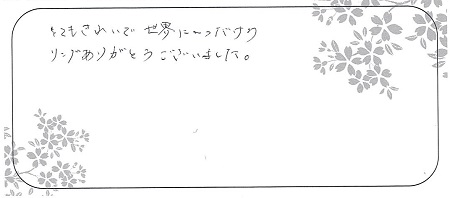 とてもきれいで世界に一つだけの
リングありがとうございました。